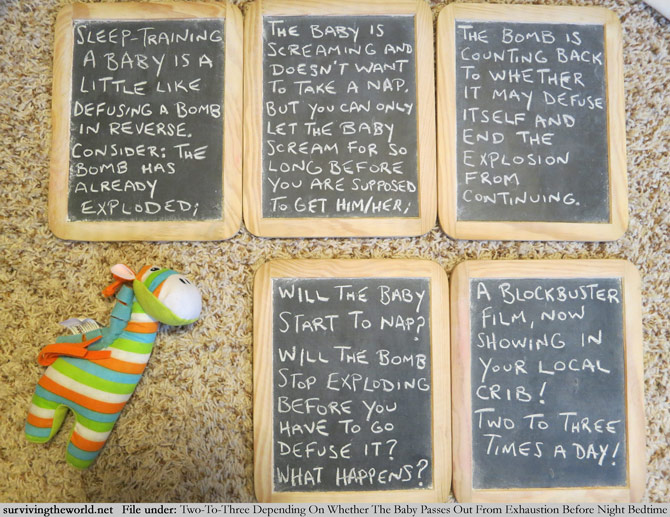 SLEEP-TRAINING
A BABY IS A
LITTLE LIKE
DEFUSING A BOMB
IN REVERSE.
CONSIDER: THE
BOMB HAS
ALREADY
EXPLODED;
THE BABY IS
SCREAMING AND
DOESN'T WANT
TO TAKE A NAP.
BUT YOU CAN ONLY
LET THE BABY
SCREAM FOR SO
LONG BEFORE
YOU ARE SUPPOSED
TO GET HIM/HER;
THE BOMB IS
COUNTING BACK
TO WHETHER
IT MAY DEFUSE
ITSELF AND
END THE
EXPLOSION
FROM
CONTINUING.
WILL THE BABY
START TO NAP?
WILL THE BOMB
STOP EXPLODING
BEFORE YOU
HAVE TO GO
DEFUSE IT?
WHAT HAPPENS?
A BLOCKBUSTER
FILM, NOW
SHOWING IN
YOUR LOCAL
CRIB!
TWO TO THREE
TIMES A DAY!
survivingtheworld.net File under: Two-To-Three Depending On Whether The Baby Passes Out From Exhaustion Before Night Bedtime